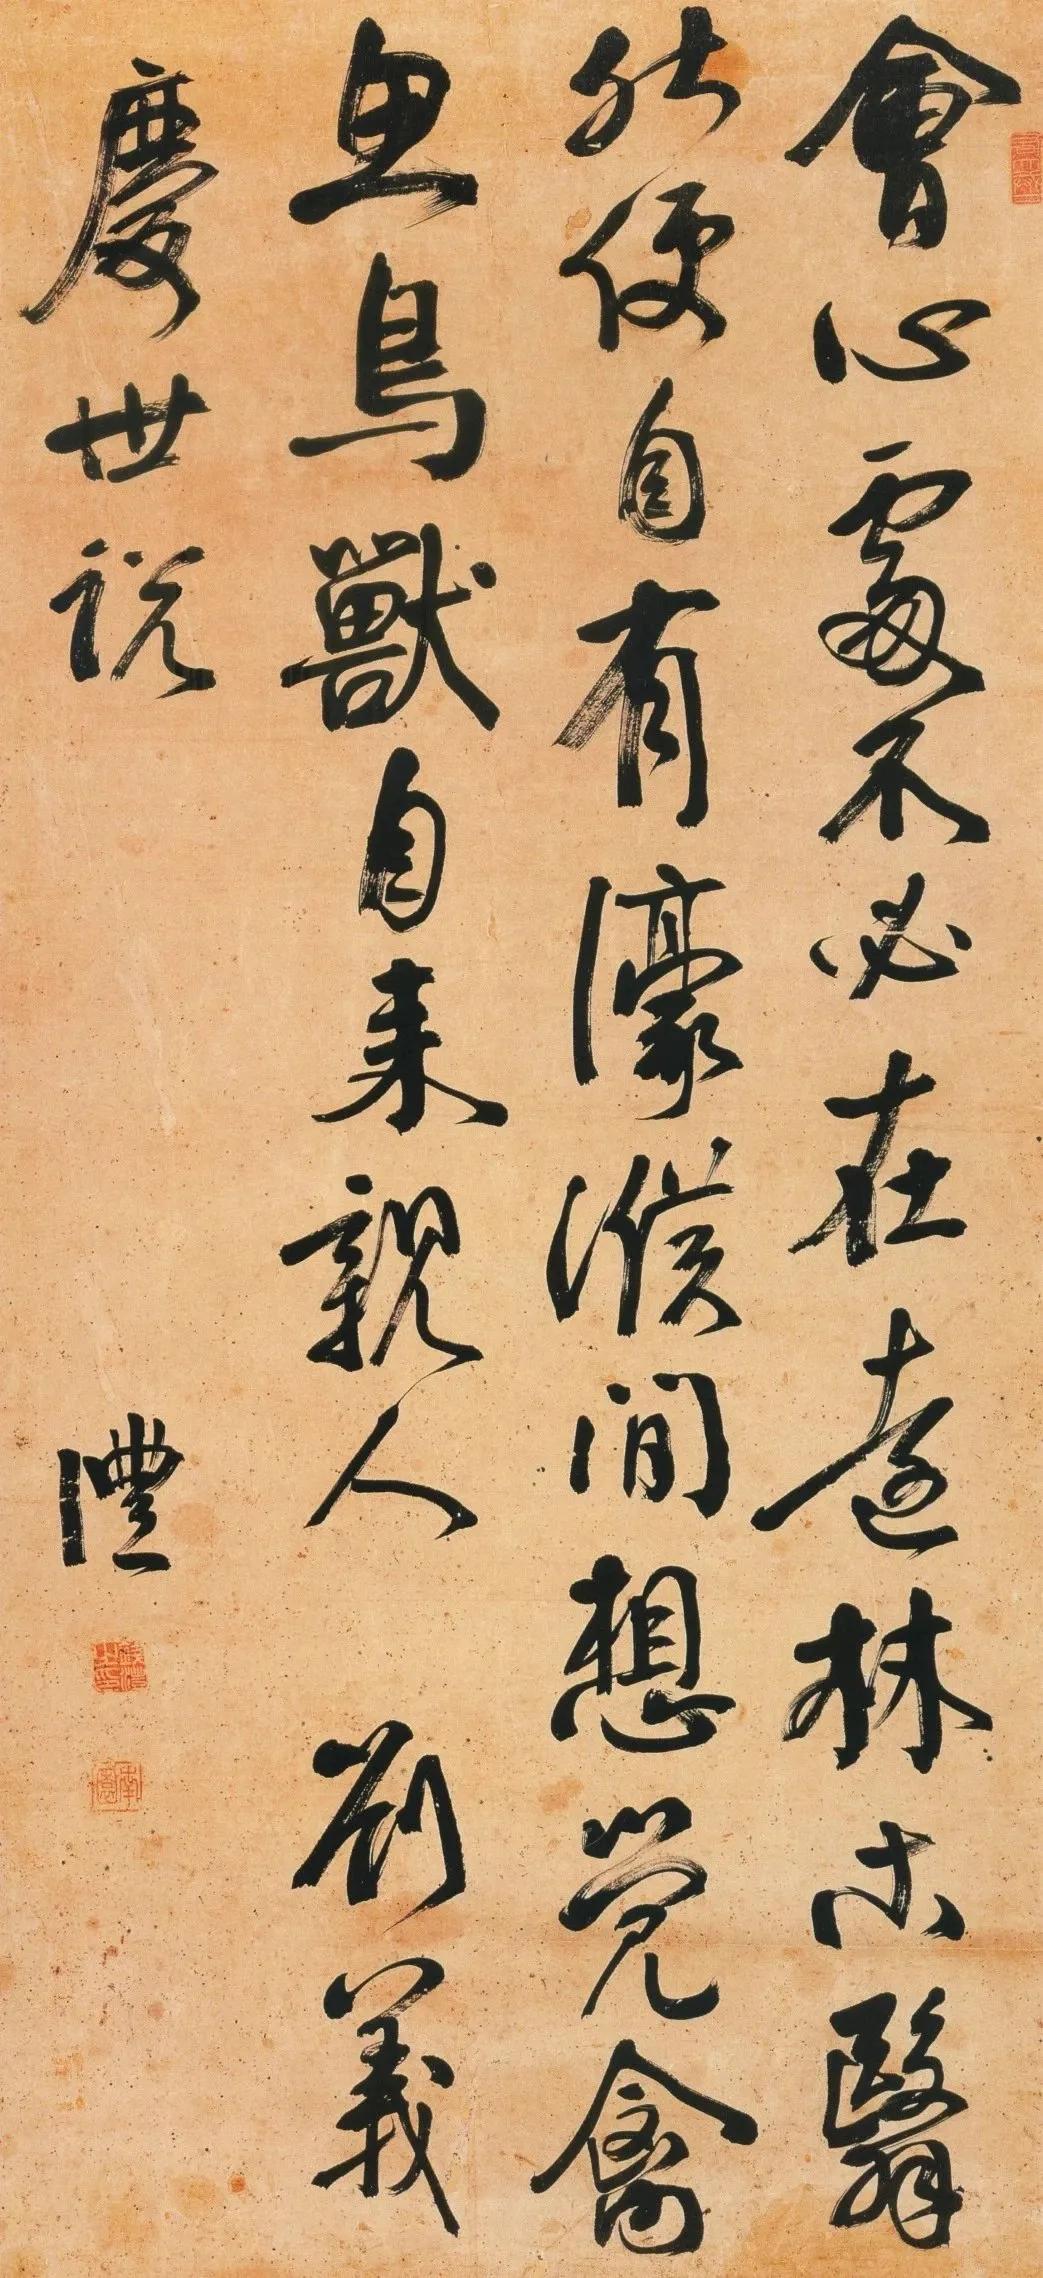 會心處不必在遠林木翳
然便自有濠濮間想覺禽
魚鳥獸自来親人 劉義
慶世說
灃
錢灃之印
南園